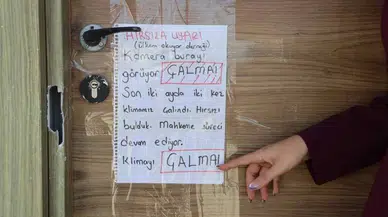 HIRSIZA UYARI
(Ülkem okuyor derneği)
Kamera burayı
görüyor ÇALMA!
Son iki ayda iki kez
klimamız çalındı. Hırsızı
bulduk. Mahkeme süreci
devam ediyor.
Klimayı ÇALMA!